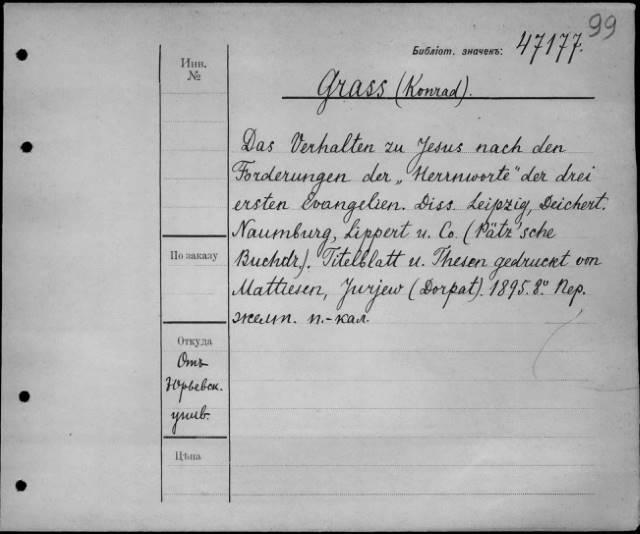 99
Библіот. значекъ: 47177.
Инв.
№
Grass (Konrad).
Das Verhalten zu Jesus nach den
Forderungen der „Herrnworte" der drei
ersten Evangelien. Diss. Leipzig, Deichert.
Naumburg, Lippert u. Co. (Pätz'sche
Buchdr.). Titelblatt u. Thesen gedruckt von
Mattiesen, Jurjew (Dorpat). 1895. 8°. Пер.
желт. п.-кал.
По заказу
Откуда
Отъ
Юрьевск.
унив.
Цѣна